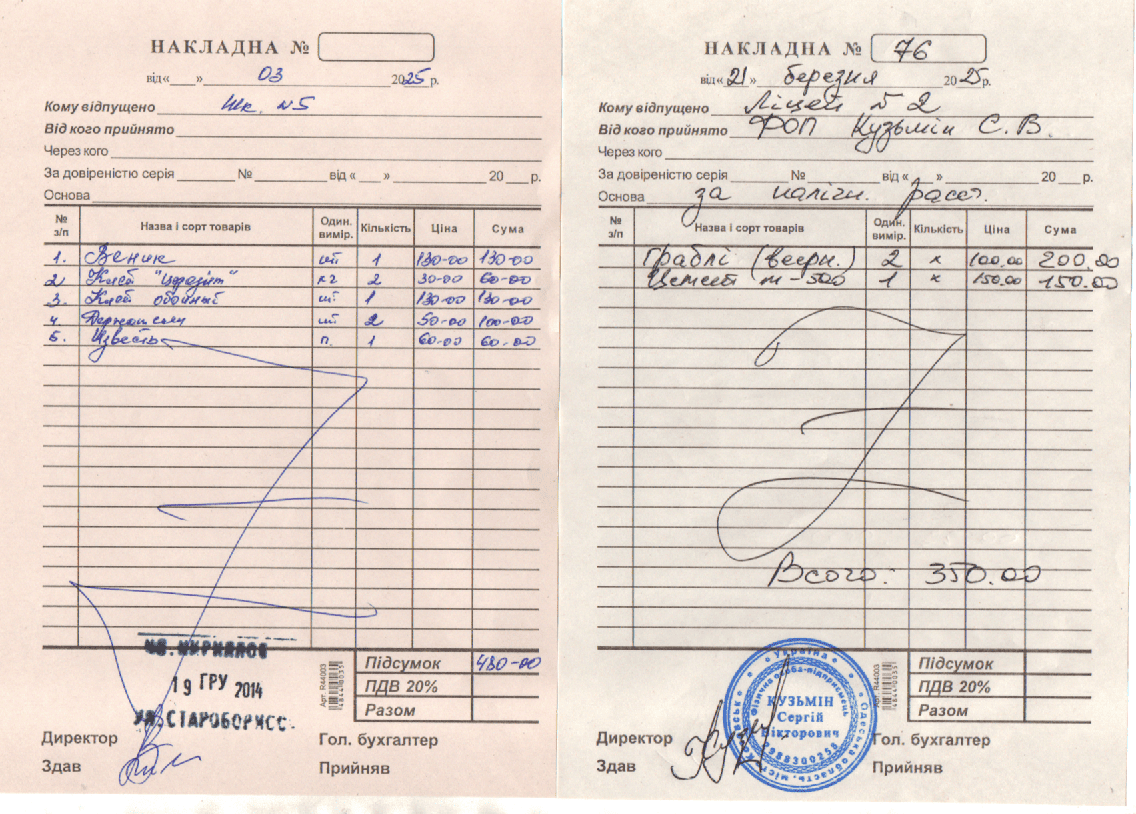 НАКЛАДНА №
від « » 03 2025 р.
Кому відпущено Шк. №5
Від кого прийнято
Через кого
За довіреністю серія № від « » 20 р.
Основа
№ з/п Назва і сорт товарів Один. вимір. Кількість Ціна Сума
1. Веник шт 1 130-00 130-00
2 Клей кг 2 30-00 60-00
3. Клей обойный шт 1 130-00 130-00
4. шт 2 50-00 100-00
5. Известь п. 1 60-00 60-00
Підсумок 480-00
ПДВ 20%
Разом
Арт. R44003
19 ГРУ 2014
УЛ. СТАРОБОРИСС.
Директор Гол. бухгалтер
Здав Прийняв
НАКЛАДНА № 76
від «21» березня 2025р.
Кому відпущено Ліцей №2
Від кого прийнято ФОП Кузьмін С.В.
Через кого
За довіреністю серія № від « » 20 р.
Основа за налічн. расст.
№ з/п Назва і сорт товарів Один. вимір. Кількість Ціна Сума
Граблі (веерн.) 2 х 100.00 200.00
Цемент м-500 1 х 150.00 150.00
Всого: 350.00
Підсумок
ПДВ 20%
Разом
Арт. R44003
Україна
Фізична особа-підприємець
Одеська область, міс
КУЗЬМІН
Сергій
Вікторович
Директор Гол. бухгалтер
Здав Прийняв